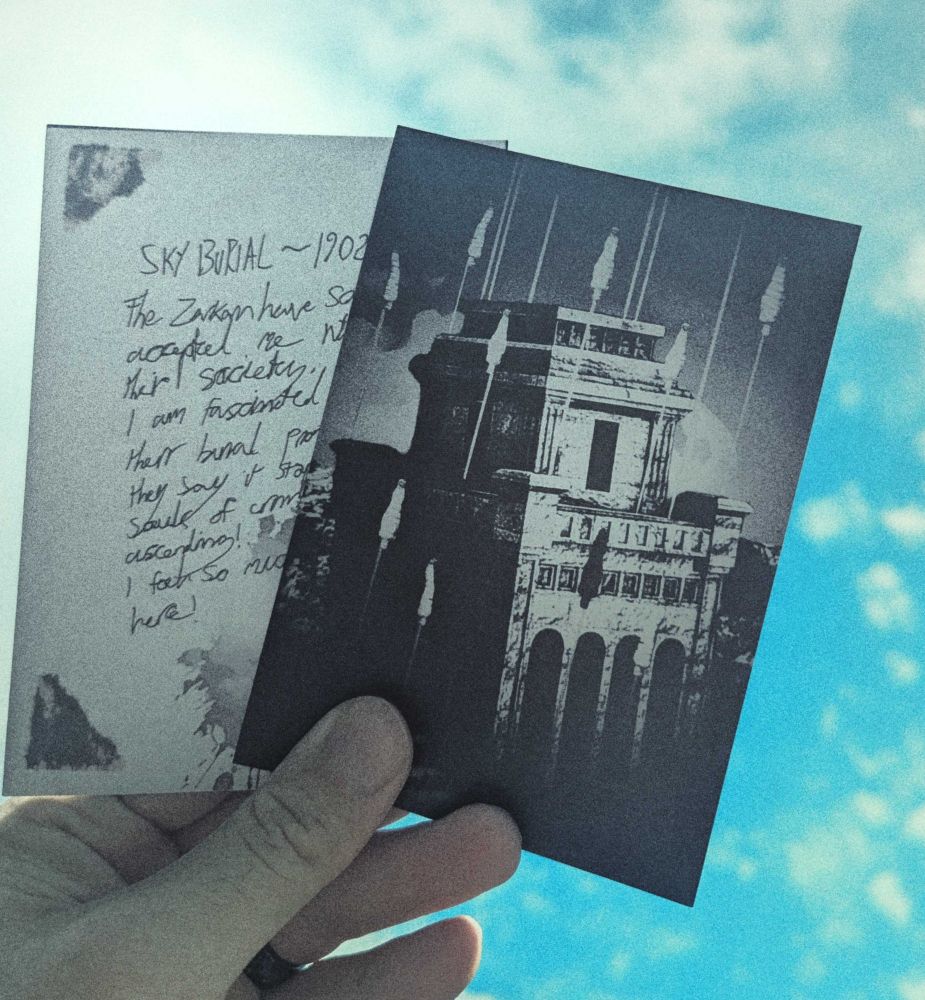 SKY BURIAL ~1902
The Zarkam have so
accepted me
their society.
I am fascinated
their burial
they say it
souls of
ascending!
I feel so
here!